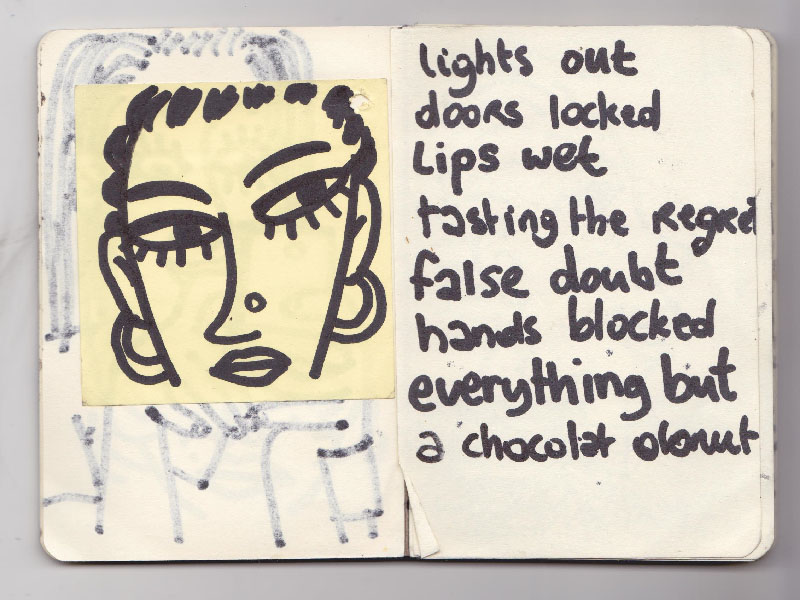 lights out
doors locked
Lips wet
tasting the Regret
false doubt
hands blocked
everything but
a chocolat donut